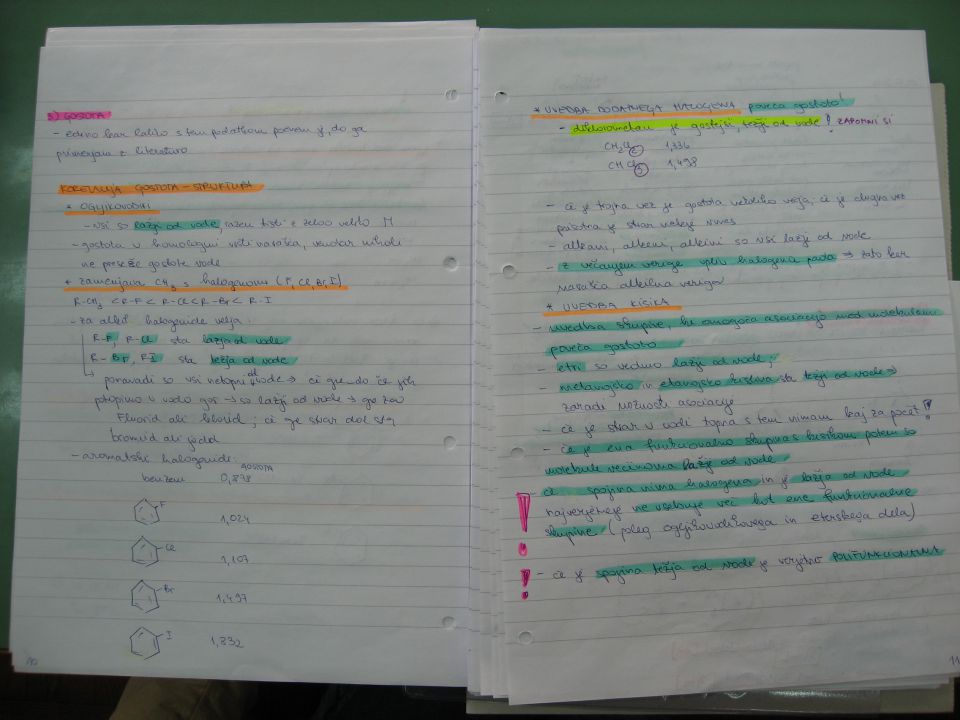 3) GOSTOTA
- edino kar lahko s tem podatkom povem je, da ga
primerjam z literaturo
KORELACIJA GOSTOTA - STRUKTURA
* OGLJIKOVODIKI
- vsi so lažji od vode, razen tisti z zelo veliko M
- gostota v homologni vrsti narašča, vendar nikoli
ne preseže gostote vode
* zamenjava CH3 s halogenom (F, Cl, Br, I)
R-CH3 < R-F < R-Cl < R-Br < R-I
- za alkil halogenide velja:
R-F, R-Cl sta lažja od vode
R-Br, RI sta težja od vode
ponavadi so vsi netopni v vode → če gre do če jih
potopimo v vodo gor → so lažji od vode → gre za
Fluorid ali klorid; če gre stvar dol
bromid ali jodid
- aromatski halogenidi:
GOSTOTA
benzen 0,878
F 1,024
Cl 1,107
Br 1,497
I 1,832
10
* UVEDBA DODATNEGA HALOGENA poveča gostoto!
- diklorometan je gostejši, težji od vode! ZAPOMNI SI
CH2Cl2 1,336
CHCl3 1,498
- če je trojna vez je gostota nekoliko večja; če je dvojna vez
prisotna je stvar nekje vmes
- alkani, alkeni, alkini so vsi lažji od vode
- z večanjem verige vpliv halogena pada → zato ker
narašča alkilna veriga
* UVEDBA KISIKA
- uvedba skupine, ki omogoča asociacijo med molekulami
poveča gostoto
- etri so vedno lažji od vode;
- metanojska in etanojska kislina sta težji od vode →
zaradi možnosti asociacije
- če je stvar v vodi topna s tem nimam kaj za početi!
- če je ena funkcionalna skupina s kisikom potem so
molekule večinoma lažje od vode
- če spojina nima halogena in je lažja od vode
najverjetneje ne vsebuje več kot ene funkcionalne
skupine (poleg ogljikovodikovega in eterskega dela)
- če je spojina težja od vode je verjetno POLIFUNKCIONALNA
11